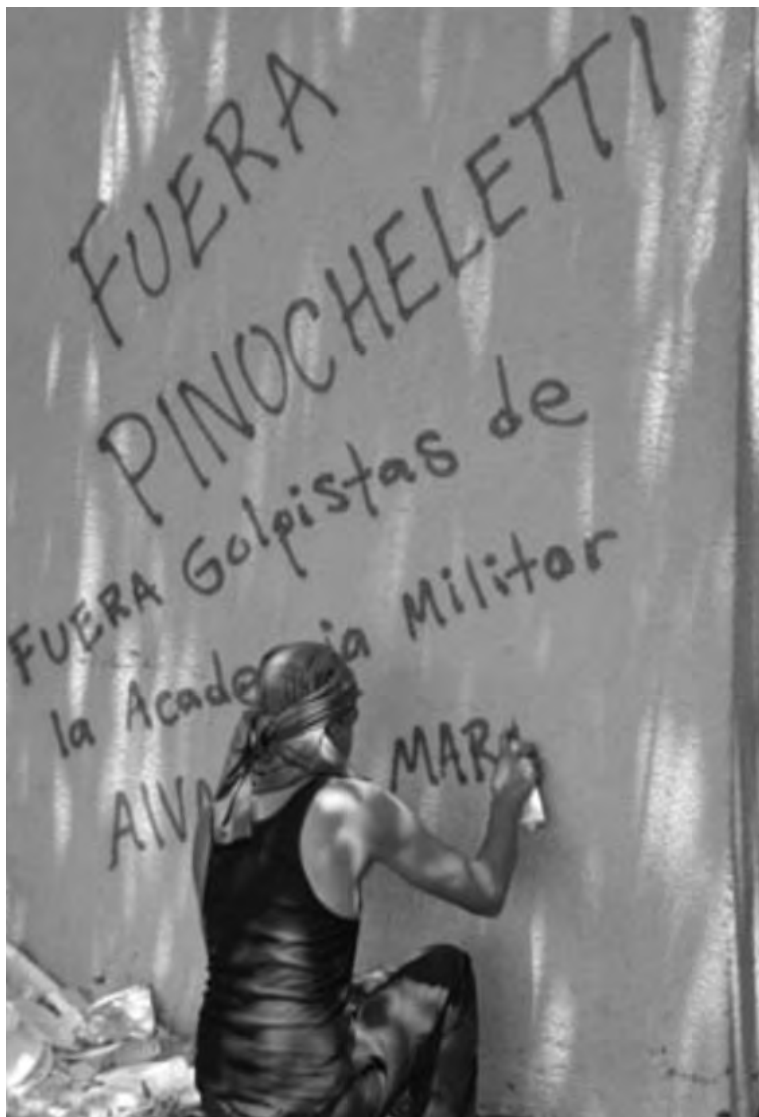 FUERA
PINOCHELETTI
FUERA Golpistas de
la Academia Militar
MAR